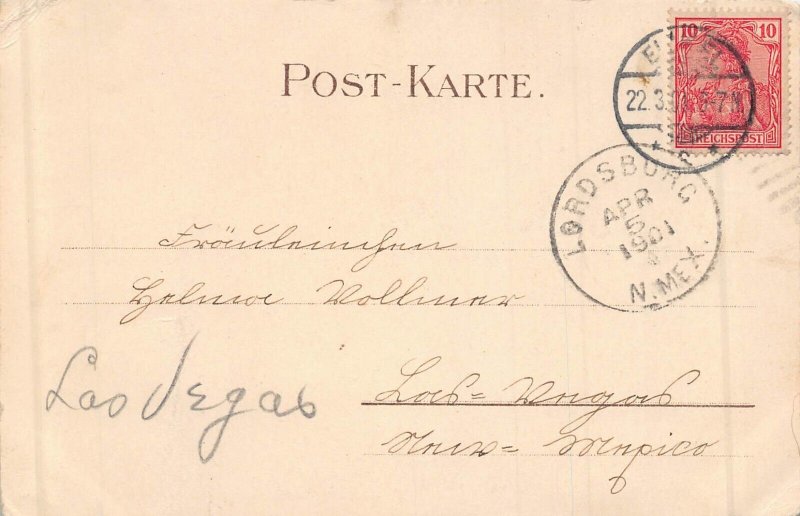 POST-KARTE.
10 10
REICHSPOST
22.3.01. 7N
LORDSBURG
APR
5
1901
N. MEX.
Fräuleinchen
Helme Vollmer
Las Vegas
Las=Vegas
New=Mexico